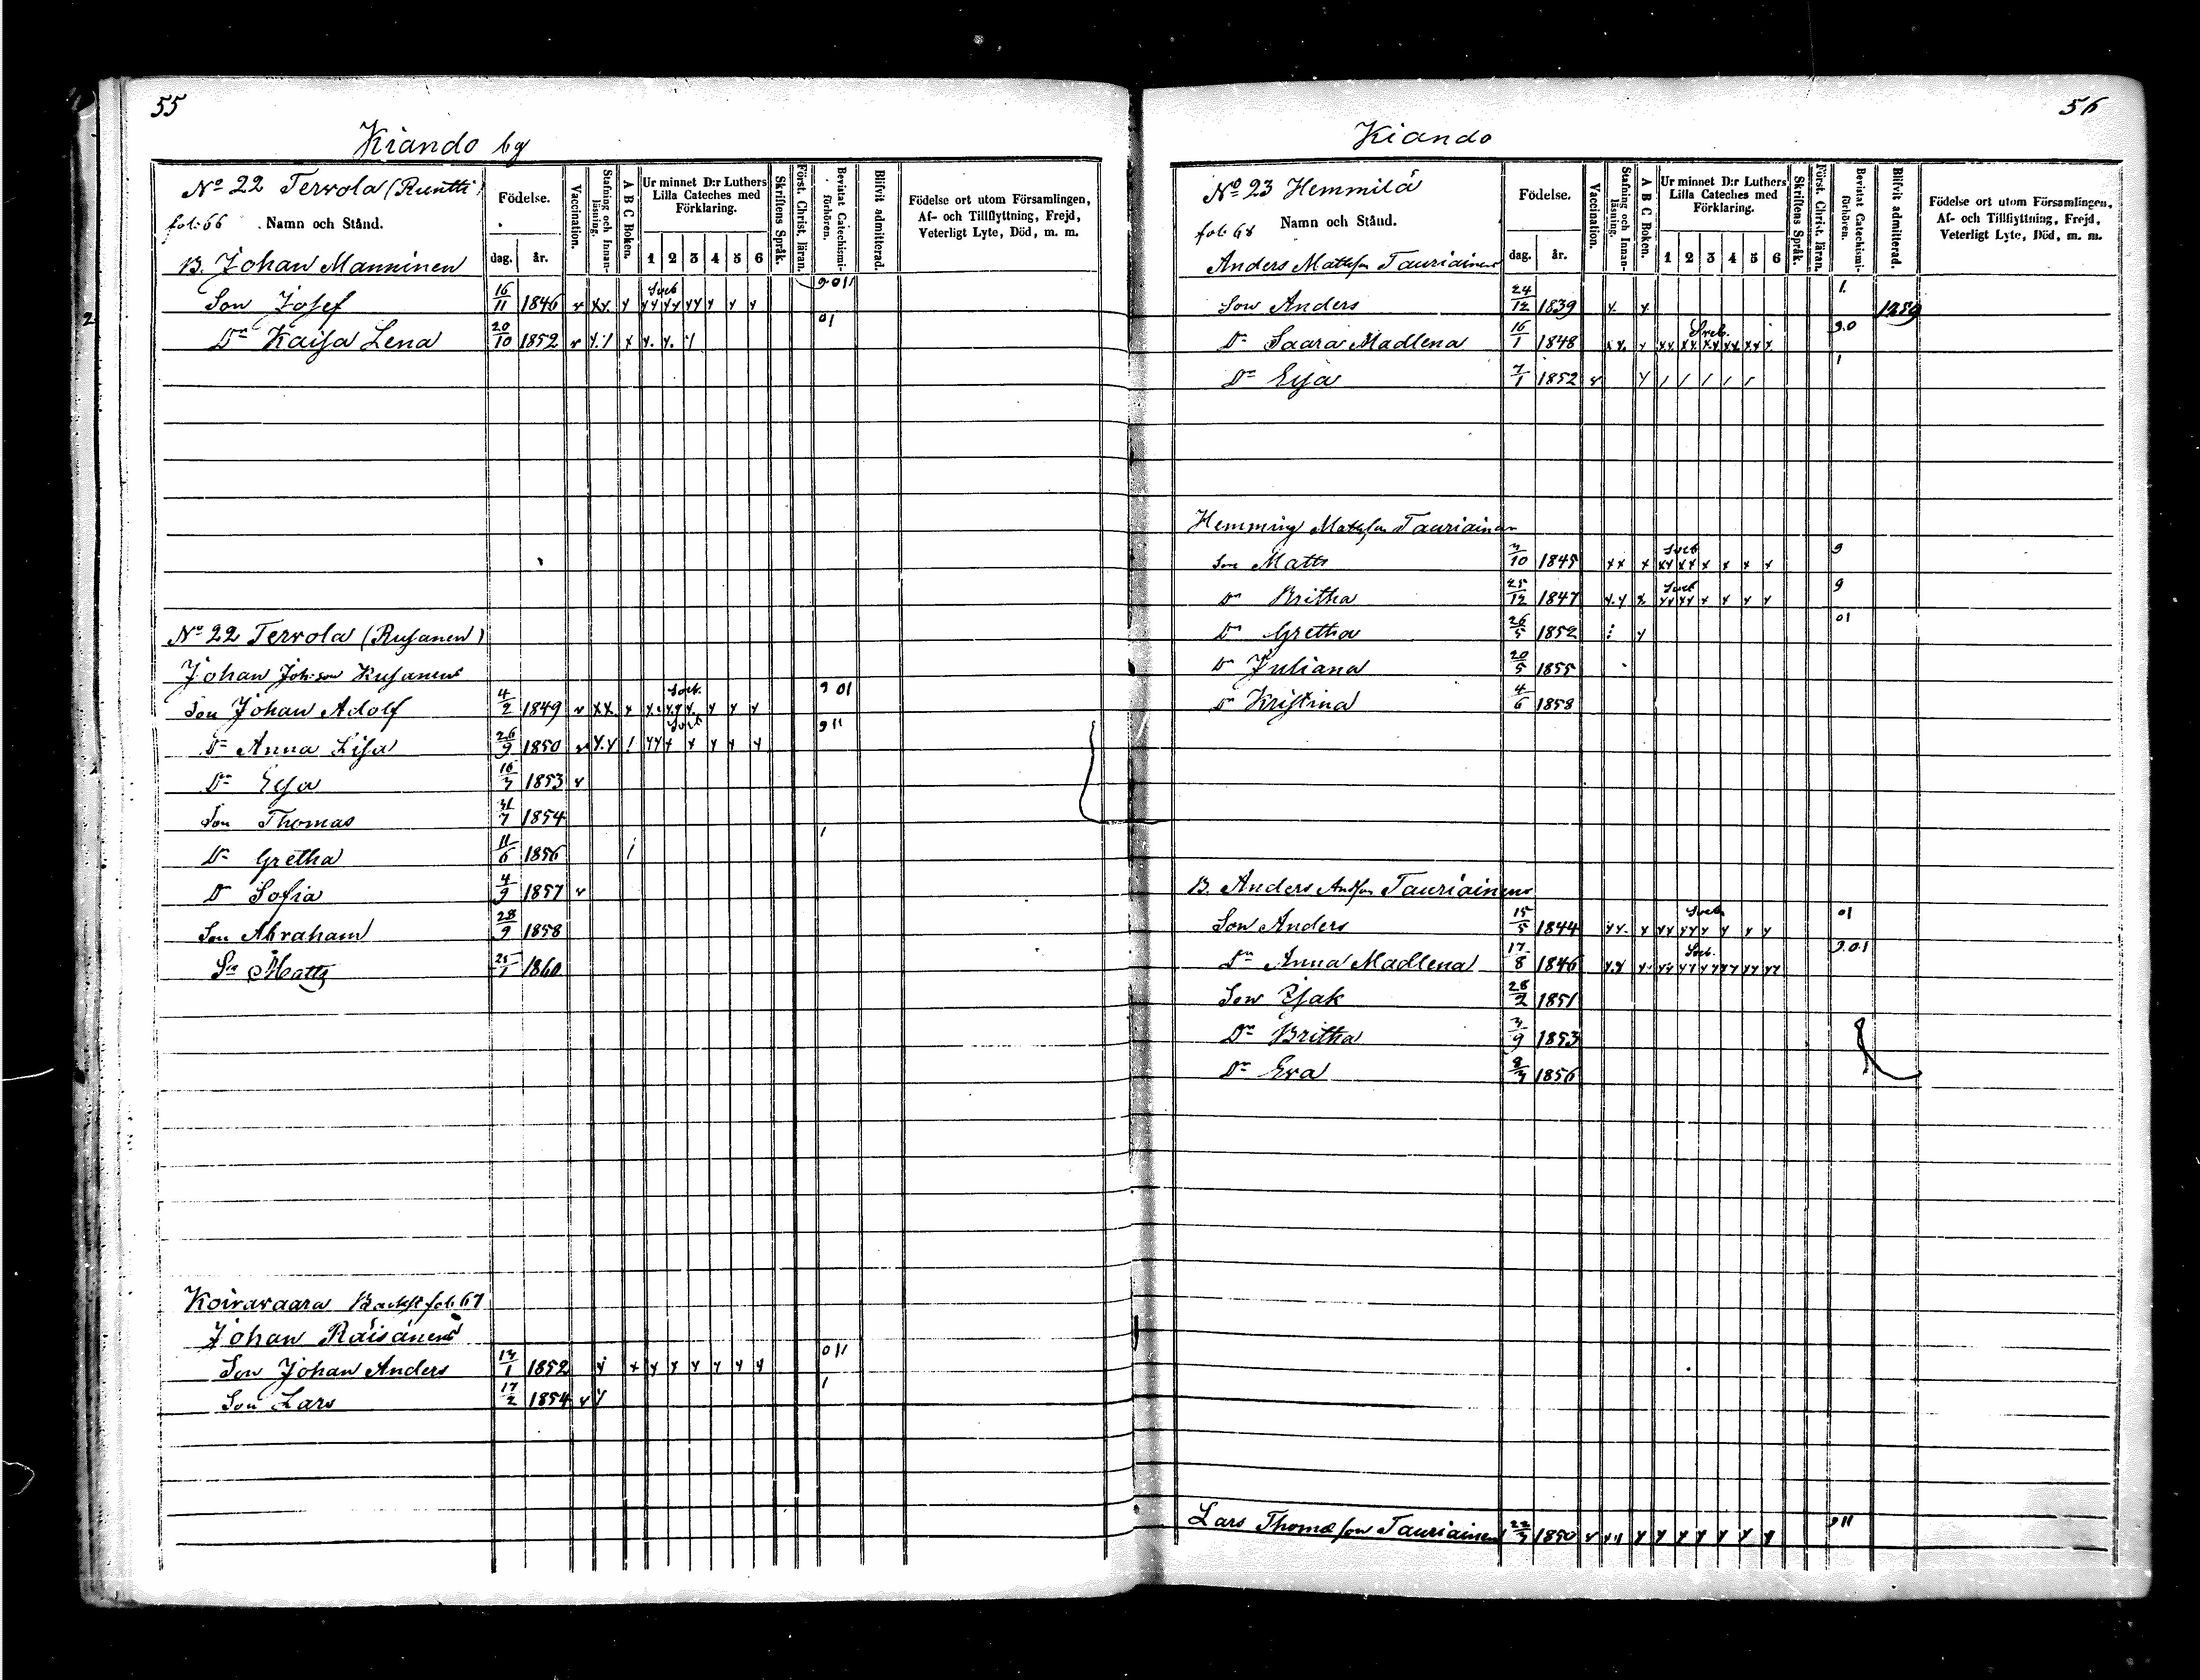 55
Kiando by
No 22 Tervola (Runtti)
fol. 66 Namn och Stånd.
Födelse.
dag. år.
Vaccination.
Stafning och Innanläsning.
A B C Boken.
Ur minnet D:r Luthers Lilla Cateches med Förklaring.
1 2 3 4 5 6
Skriftens Språk.
Först. Christ. läran.
Bevistat Catechismiförhören.
Blifvit admitterad.
Födelse ort utom Församlingen, Af- och Tillflyttning, Frejd, Veterligt Lyte, Död, m. m.
B. Johan Manninen
Son Josef 16/11 1846 v xx. y yy yy yy y y y 9 011
Dr Kaisa Lena 20/10 1852 v 01
No 22 Tervola (Rusanen)
Johan Johsson Rusanens
Son Johan Adolf 4/2 1849 v xx. y 9 01
Dr Anna Lisa 26/9 1850 v 9 11
Dr Eva 1853 v
Son Thomas 31/7 1854
Dr Gretha 11/6 1856 1
Dr Sofia 4/9 1857 v
Son Abraham 28/9 1858
Sn Matts 25/1 1860
Koivavaara Backst fol. 67
Johan Räisänens
Son Johan Anders 1852 y x y y y y y y 011
Son Lars 17/2 1854 v 1
56
Kiando
No 23 Hemmilä
fol. 68 Namn och Stånd.
Födelse.
dag. år.
Vaccination.
Stafning och Innanläsning.
A B C Boken.
Ur minnet D:r Luthers Lilla Cateches med Förklaring.
1 2 3 4 5 6
Skriftens Språk.
Först. Christ. läran.
Bevistat Catechismiförhören.
Blifvit admitterad.
Födelse ort utom Församlingen, Af- och Tillflyttning, Frejd, Veterligt Lyte, Död, m. m.
Anders Mattsson Tauriainens
Son Anders 24/12 1839 y. y. 1. 1859
Dr Saara Madlena 16/1 1848 9.0
Dr Eva 7/1 1852 v y 1
Hemming Mattsson Tauriainen
Son Matts 1845 xx x 9
Dr Britha 25/12 1847 9
Dr Gretha 26/5 1852 y 01
Dr Juliana 20/5 1855
Dr Kristina 4/6 1858
B. Anders Andsson Tauriainens
Son Anders 15/5 1844 yy. y 01
Dr Anna Madlena 17/8 1846 9.01
Son Isak 28/2 1851
Dr Britha 1853
Dr Eva 1856
Lars Thomasson Tauriainen 1850 v y y y y y y y 911